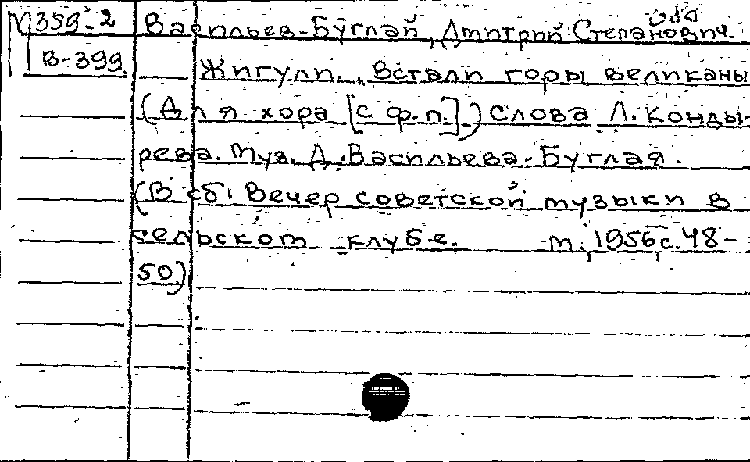 359-2 Васильев-Буглай, Дмитрий Степанович.
В-399 Жигули. Встали горы великаны
(Для хора [с ф.п.]) Слова Л. Конды-
рева. Муз. Д. Васильева-Буглая.
(В сб. Вечер советской музыки в
сельском клубе. М., 1956, с. 48-
50)